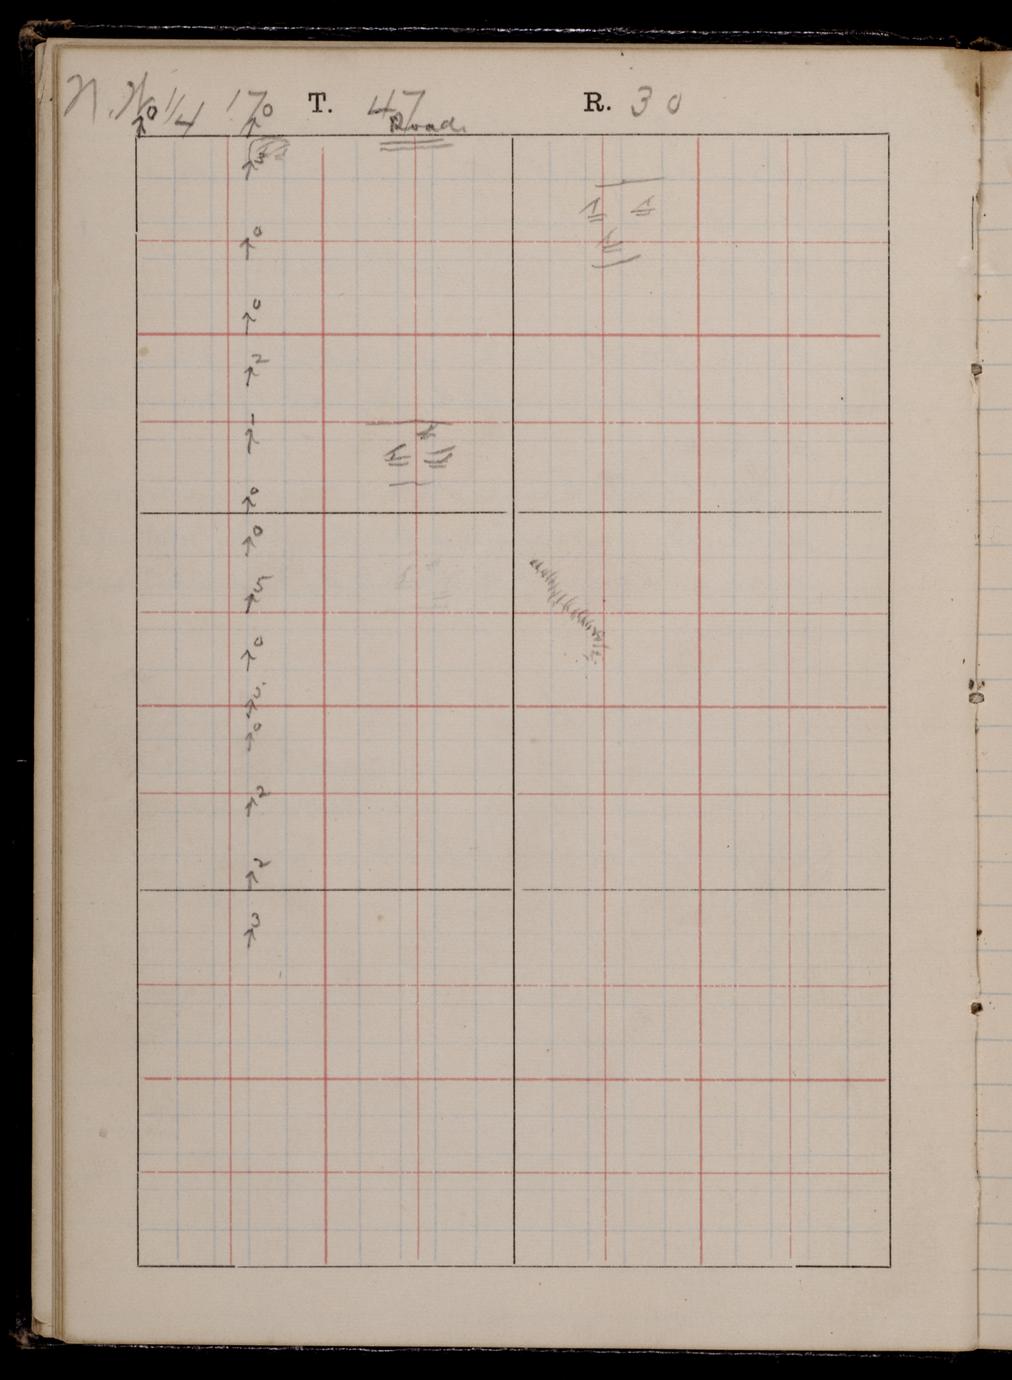 N.W. 1/4 17 T. 47 R. 30
↑0 ↑0 Road
↑3
↑0
↑0
↑2
↑1
↑0
↑0
↑5
↑0
↑0
↑2
↑2
↑3